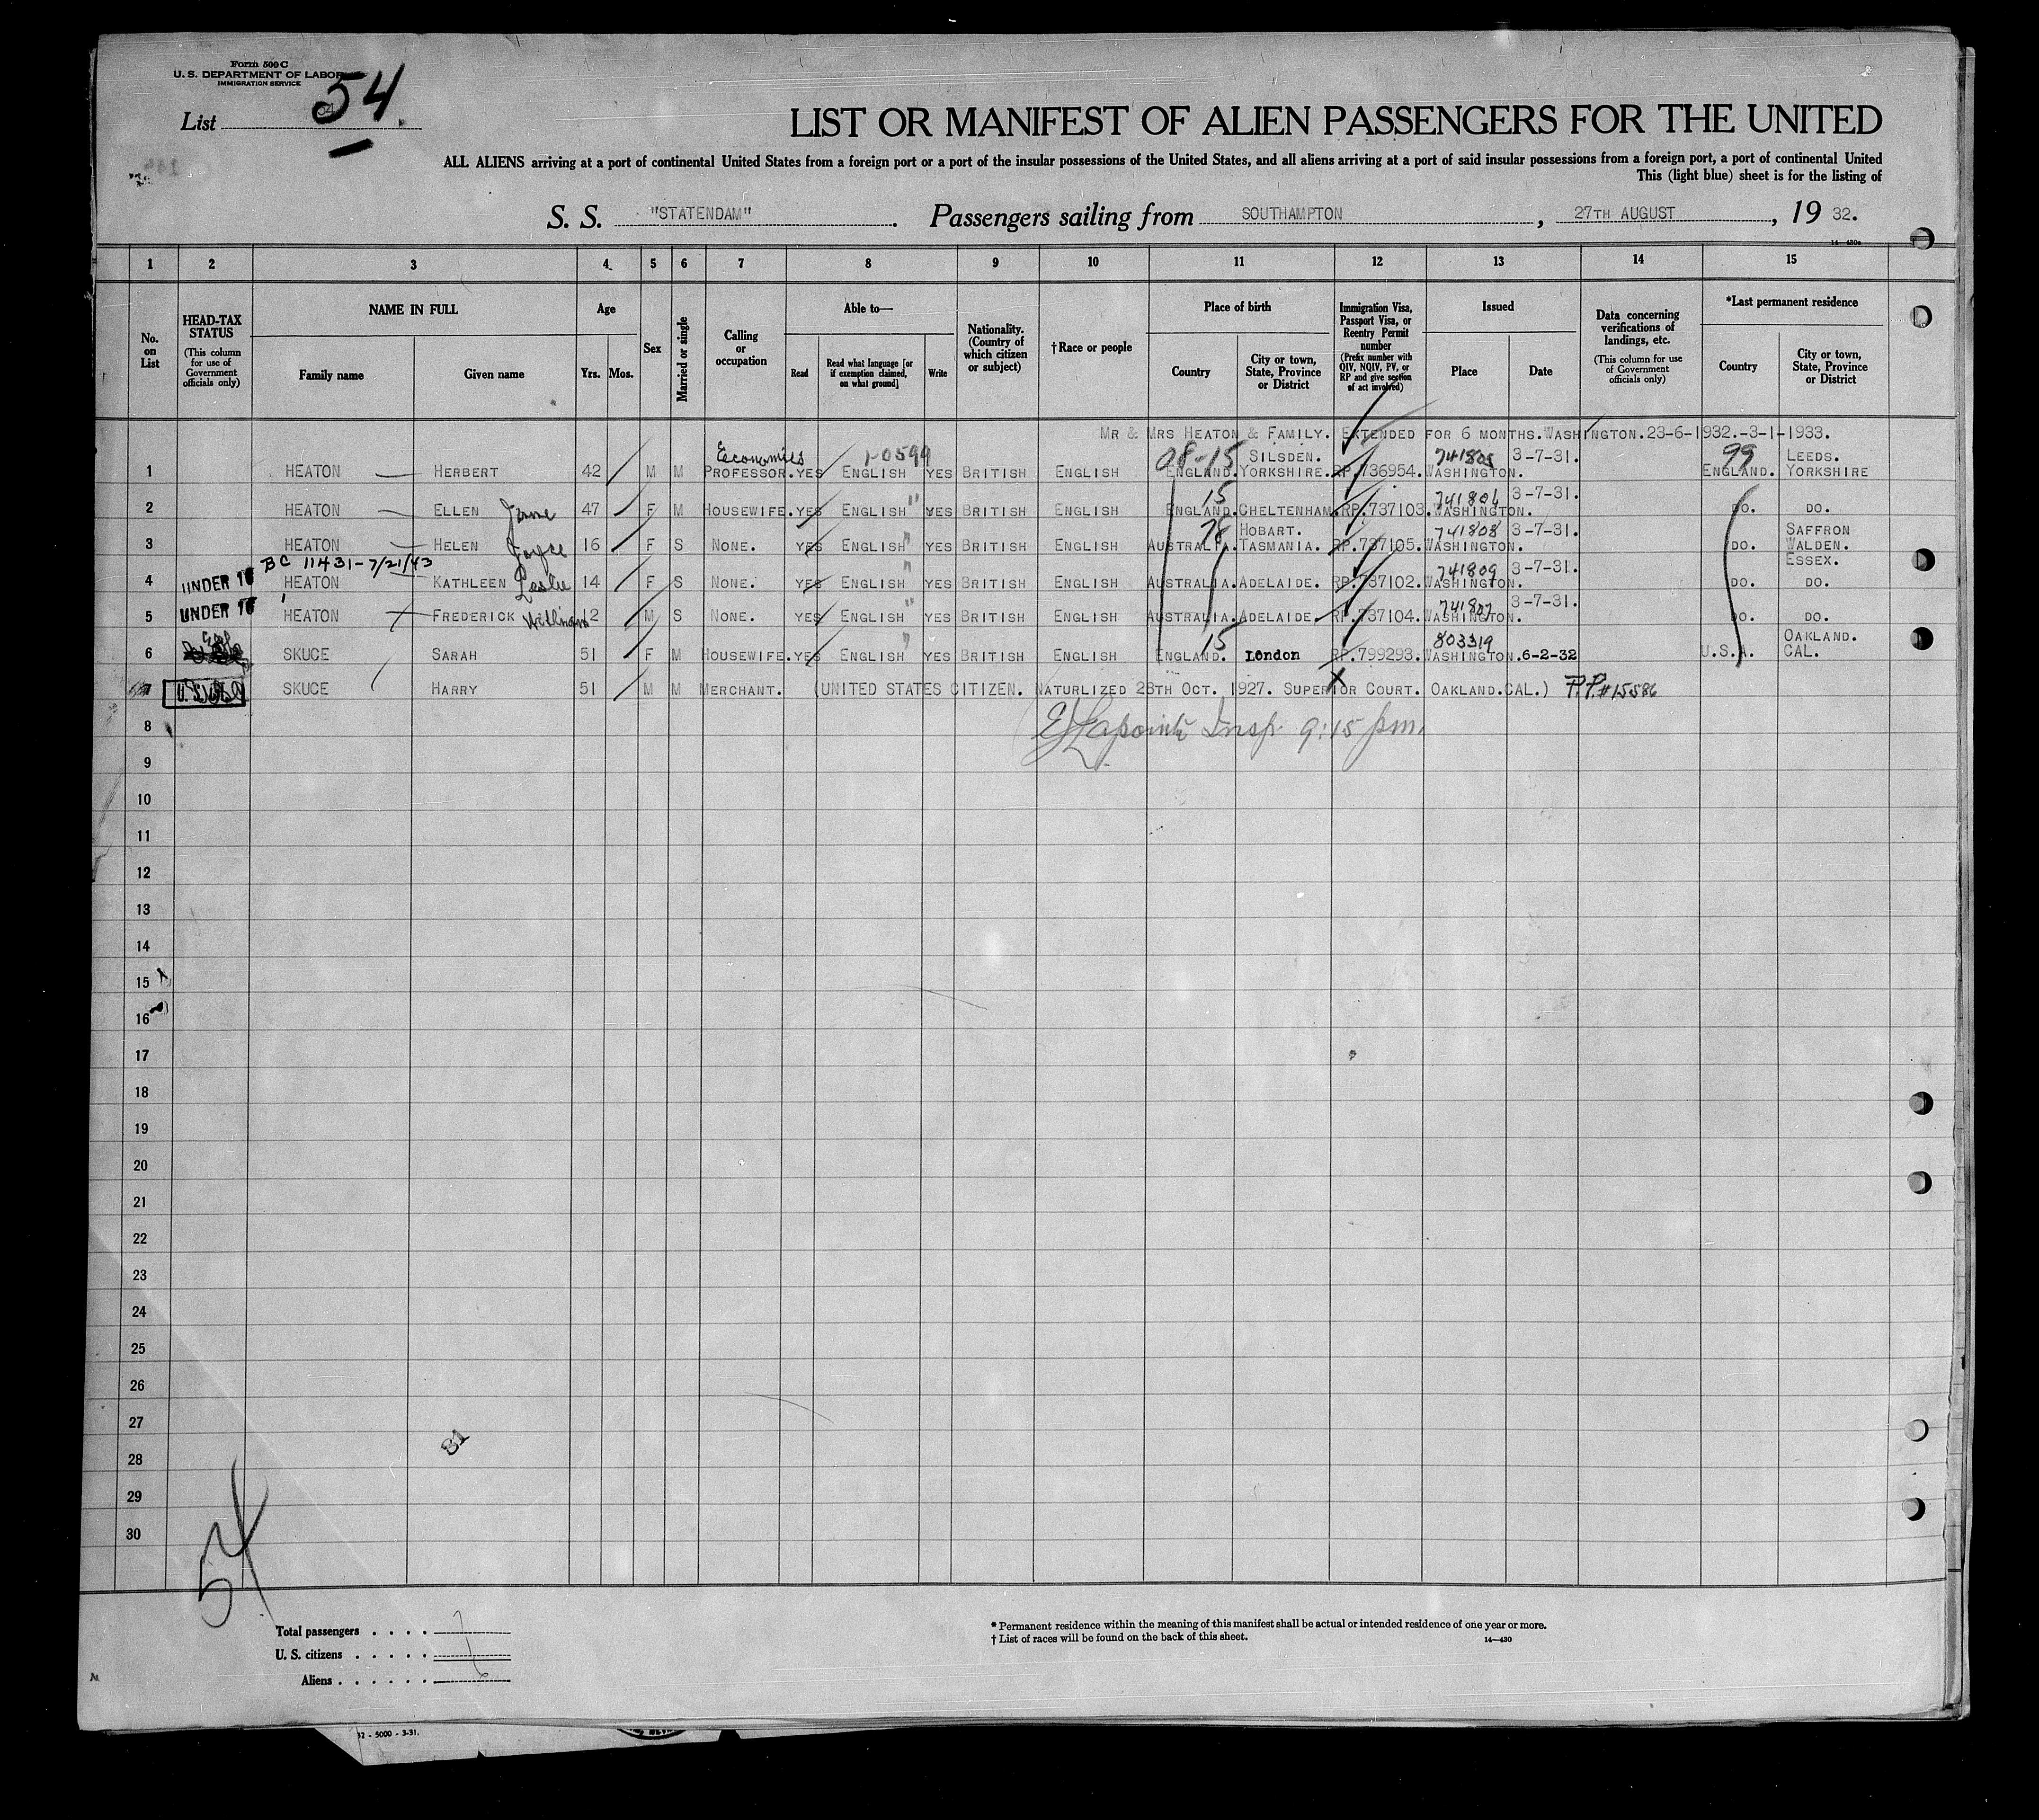 Form 500 C
U. S. DEPARTMENT OF LABOR
IMMIGRATION SERVICE
List 54.
LIST OR MANIFEST OF ALIEN PASSENGERS FOR THE UNITED
ALL ALIENS arriving at a port of continental United States from a foreign port or a port of the insular possessions of the United States, and all aliens arriving at a port of said insular possessions from a foreign port, a port of continental United
This (light blue) sheet is for the listing of
S. S. "STATENDAM". Passengers sailing from SOUTHAMPTON, 27TH AUGUST, 19 32.
14—430a
1 2 3 4 5 6 7 8 9 10 11 12 13 14 15
No. on List
HEAD-TAX STATUS (This column for use of Government officials only)
NAME IN FULL Family name Given name
Age Yrs. Mos.
Sex
Married or single
Calling or occupation
Able to— Read Read what language [or if exemption claimed, on what ground] Write
Nationality. (Country of which citizen or subject)
†Race or people
Place of birth Country City or town, State, Province or District
Immigration Visa, Passport Visa, or Reentry Permit number (Prefix number with QIV, NQIV, PV, or RP and give section of act involved)
Issued Place Date
Data concerning verifications of landings, etc. (This column for use of Government officials only)
*Last permanent residence Country City or town, State, Province or District
MR & MRS HEATON & FAMILY. EXTENDED FOR 6 MONTHS. WASHINGTON. 23-6-1932.-3-1-1933.
Economics 1-0599 08-15 SILSDEN. 741805 3-7-31. 99 LEEDS.
1 HEATON — HERBERT 42 M M PROFESSOR. YES ENGLISH YES BRITISH ENGLISH ENGLAND. YORKSHIRE. RP.736954. WASHINGTON. ENGLAND. YORKSHIRE
15 741806 3-7-31.
2 HEATON — ELLEN Jane 47 F M HOUSEWIFE. YES ENGLISH " YES BRITISH ENGLISH ENGLAND. CHELTENHAM. RP.737103. WASHINGTON. DO. DO.
78 HOBART. 741808 3-7-31. SAFFRON
3 HEATON — HELEN Joyce 16 F S NONE. YES ENGLISH " YES BRITISH ENGLISH AUSTRALIA. TASMANIA. RP.737105. WASHINGTON. DO. WALDEN.
BC 11431-7/21/43 741809 3-7-31. ESSEX.
4 UNDER 16 HEATON — KATHLEEN Leslie 14 F S NONE. YES ENGLISH " YES BRITISH ENGLISH AUSTRALIA. ADELAIDE. RP.737102. WASHINGTON. DO. DO.
741807 3-7-31.
5 UNDER 16 HEATON FREDERICK William 12 M S NONE. YES ENGLISH " YES BRITISH ENGLISH AUSTRALIA. ADELAIDE. RP.737104. WASHINGTON. DO. DO.
15 803319 OAKLAND.
6 SKUCE SARAH 51 F M HOUSEWIFE. YES ENGLISH " YES BRITISH ENGLISH ENGLAND. London RP.799293. WASHINGTON. 6-2-32 U.S.A. CAL.
SKUCE HARRY 51 M M MERCHANT. (UNITED STATES CITIZEN. NATURLIZED 28TH OCT. 1927. SUPERIOR COURT. OAKLAND. CAL.) P.P.#15586
8 Lapointe Insp. 9:15 pm.
9
10
11
12
13
14
15
16
17
18
19
20
21
22
23
24
25
26
27
31
28
29
30
54
Total passengers . . . . 7
U. S. citizens . . . . . 1
Aliens . . . . . . 6
* Permanent residence within the meaning of this manifest shall be actual or intended residence of one year or more.
† List of races will be found on the back of this sheet.
14—430
- 5000 - 3-31.